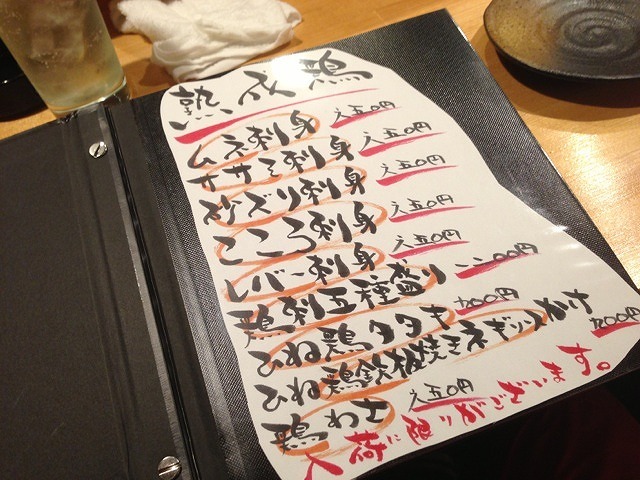 熟成鶏
ムネ刺身 六五〇円
ササミ刺身 六五〇円
砂ズリ刺身 六五〇円
こころ刺身 六五〇円
レバー刺身 六五〇円
鶏刺五種盛り 一二〇〇円
ひね鶏タタキ 七〇〇円
ひね鶏鉄板焼きネギソースがけ 七〇〇円
鶏わさ 六五〇円
入荷に限りがございます。